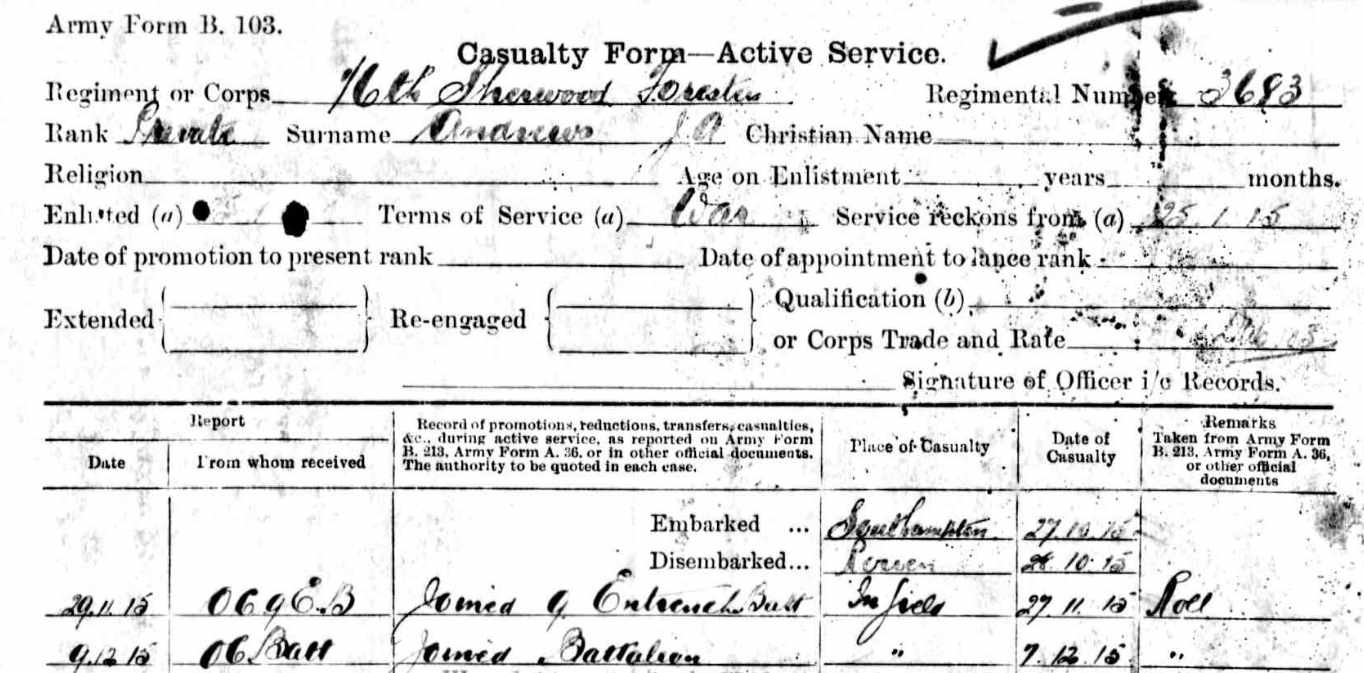 Army Form B. 103.
Casualty Form—Active Service.
Regiment or Corps /6th Sherwood Foresters Regimental Number 3693
Rank Private Surname Andrews J A Christian Name
Religion Age on Enlistment years months.
Enlisted (a) Terms of Service (a) War Service reckons from (a) 25.1.15
Date of promotion to present rank Date of appointment to lance rank
Extended Re-engaged Qualification (b)
or Corps Trade and Rate
Signature of Officer i/c Records.
Report
Date From whom received
Record of promotions, reductions, transfers, casualties,
&c., during active service, as reported on Army Form
B. 213, Army Form A. 36, or in other official documents.
The authority to be quoted in each case.
Place of Casualty
Date of
Casualty
Remarks
Taken from Army Form
B. 213, Army Form A. 36,
or other official
documents
Embarked ... Southampton 27.10.15
Disembarked... Rouen 28.10.15
29.11.15 OC 9 E.B Joined 9 Entrench. Batt In field 27 11 15 Roll
9.12.15 OC Batt Joined Battalion " 7.12.15 "